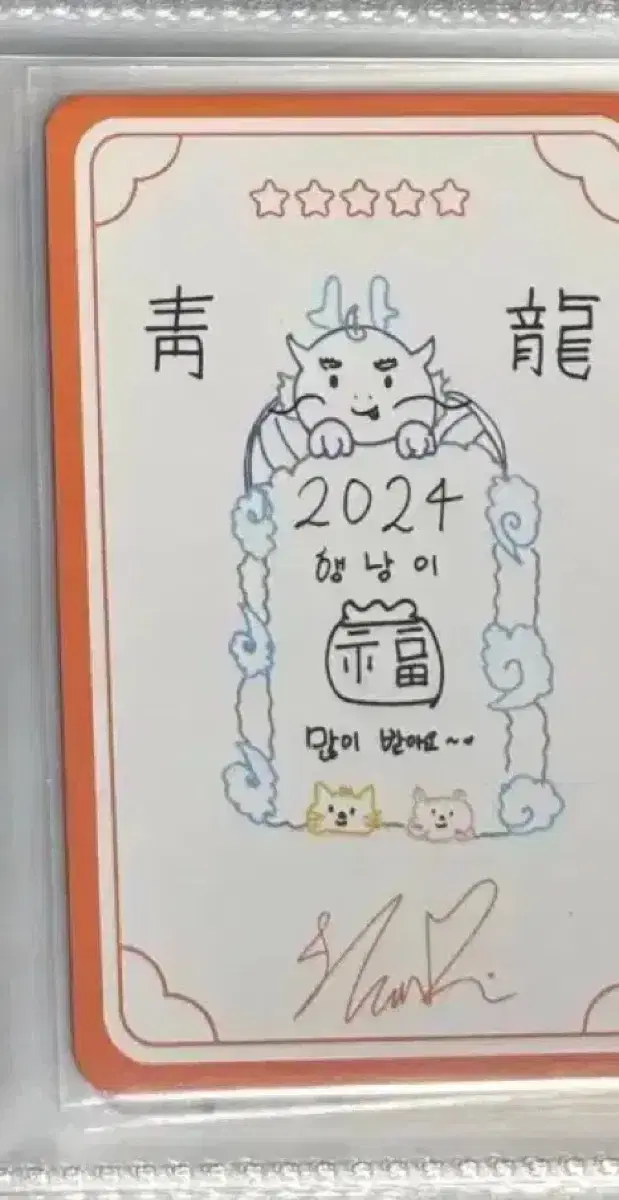 靑 龍
2024
행낭이
福
많이 받아요~~